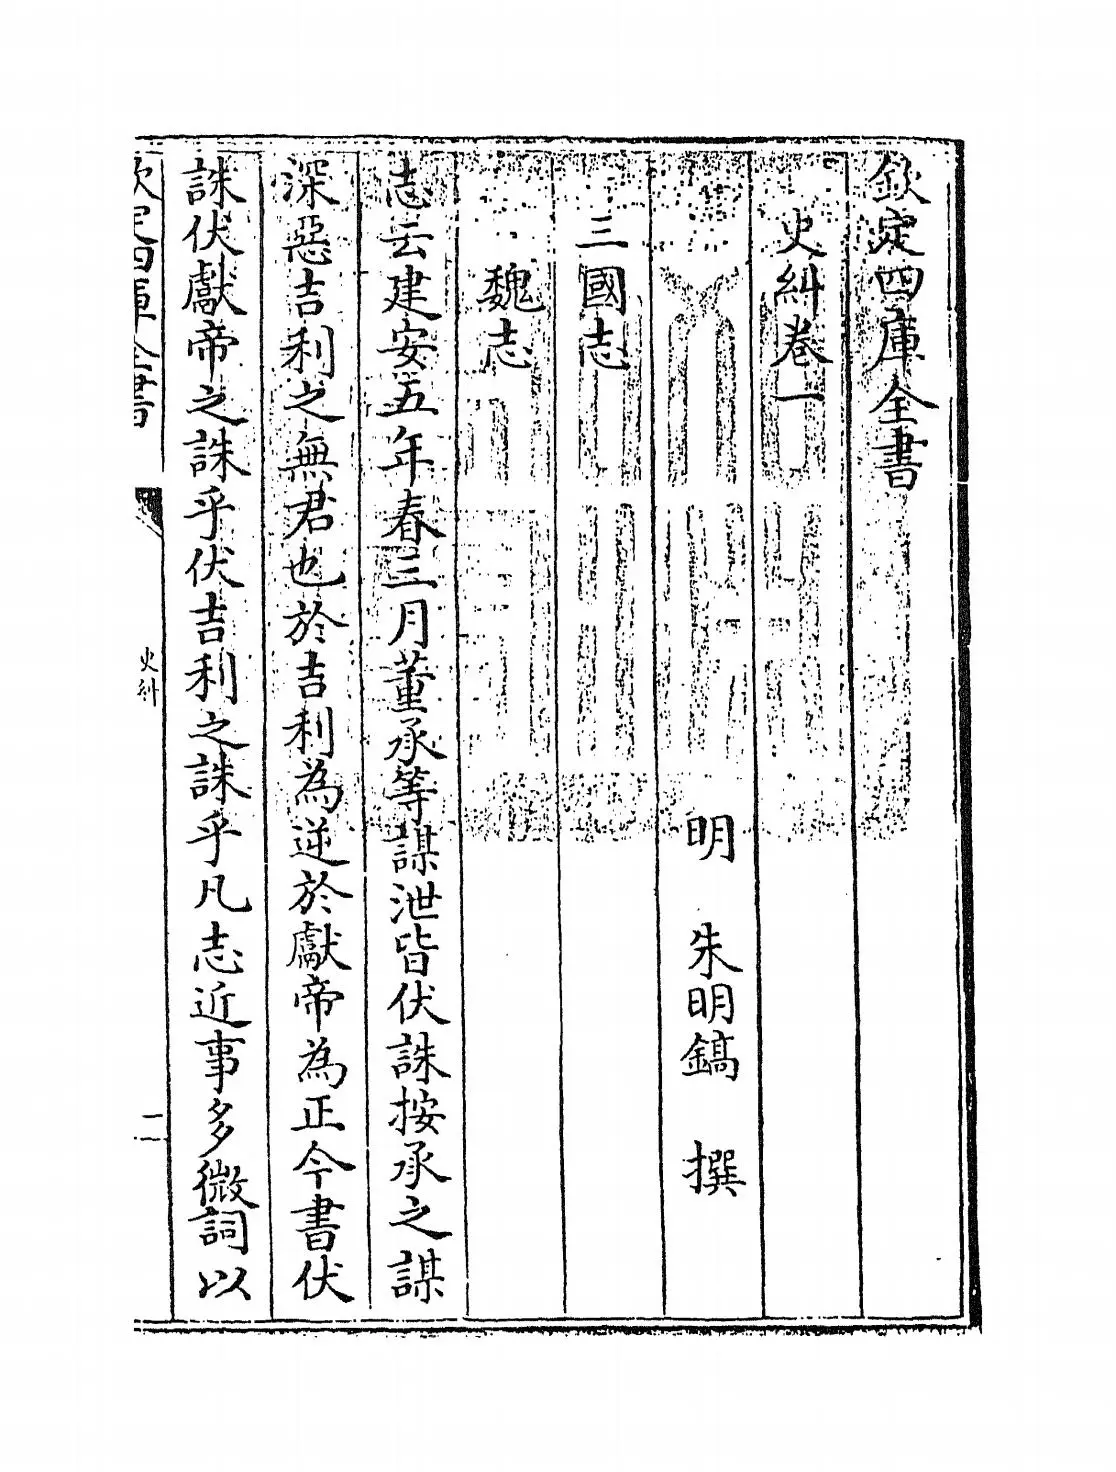 欽定四庫全書
史糾卷一
明　朱明鎬　撰
三國志
魏志
志云建安五年春三月董承等謀泄皆伏誅按承之謀
深惡吉利之無君也於吉利為逆於獻帝為正今書伏
誅伏獻帝之誅乎伏吉利之誅乎凡志近事多微詞以
欽定四庫全書
史糾
二